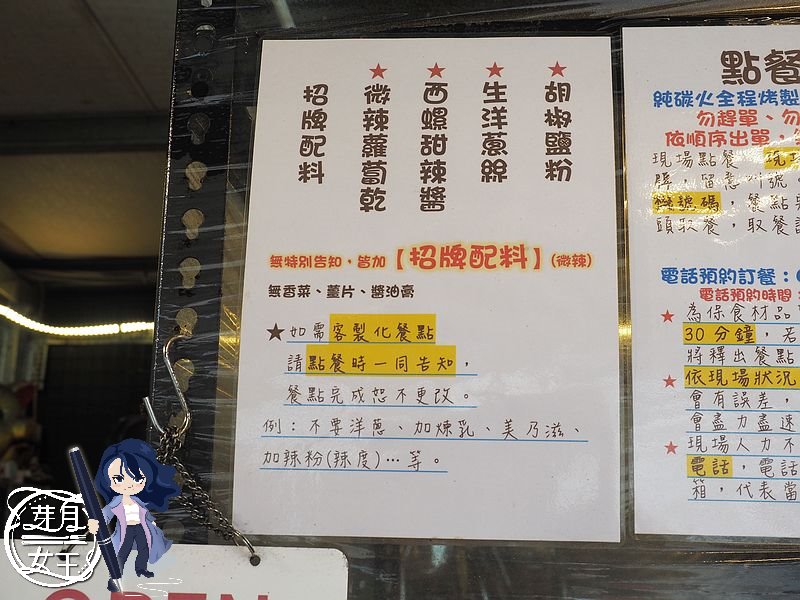 招牌配料
★微辣蘿蔔乾
★西螺甜辣醬
★生洋蔥絲
★胡椒鹽粉
無特別告知，皆加【招牌配料】(微辣)
無香菜、薑片、醬油膏
★如需客製化餐點
請點餐時一同告知，
餐點完成恕不更改。
例：不要洋蔥、加煉乳、美乃滋、
加辣粉(辣度)…等。
點餐
純碳火全程烤製
勿趕單、勿
依順序出單，
現場點餐
牌，留意叫號。
號碼，餐點
頭取餐，取餐
電話預約訂餐：
電話預約時間
★為保食材品
30分鐘，若
將釋出餐點
★依現場狀況
會有誤差，
會盡力盡速
★現場人力不
電話，電話
箱，代表當
芽月
女王
OPEN